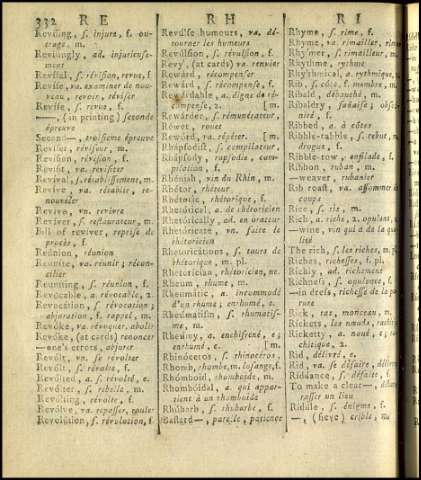 332 R E
R H
R I
Reviling, s. injure, f. ou-
trage, m.
Revilingly, ad. injurieuse-
ment
Revisal, s. révision, revue, f.
Revise, va. examiner de nou-
veau, revoir, réviser
Revise, s. revue, f.
—, (in printing) seconde
épreuve
Second—, troisième épreuve
Reviser, réviseur, m.
Revision, révision, f.
Revisit, va. revisiter
Revival, s. rétablissement, m.
Revive, va. rétablir, re-
nouveler
Revive, vn. revivre
Reviver, s. restaurateur, m.
Bill of reviver, reprise de
procès, f.
Reunion, réunion
Reunite, va. réunir; récon-
cilier
Reuniting, s. réunion, f.
Revocable, a. révocable, 2.
Revocation, s. révocation;
abjuration, f. rappel, m.
Revoke, va. révoquer, abolir
Revoke, (at cards) renoncer
—one's errors, abjurer
Revolt, vn. se révolter
Revolt, s. révolte, f.
Revolted, a. révolté, e.
Revolter, s. rebelle, m.
Revolting, révolte, f.
Revolve, va. repasser, rouler
Revolution, s. révolution, f.
Revulse humours, va. dé-
tourner les humeurs
Revulsion, s. révulsion, f.
Revy, (at cards) va. renvier
Reward, récompenser
Reward, s. récompense, f.
Rewardable, a. digne de ré-
compense, 2. [m.
Rewarder, s. rémunérateur,
Rewet, rouet
Reword, va. répéter. [m.
Rhapsodist, s. compilateur,
Rhapsody, rapsodie, com-
pilation, f.
Rhenish, vin du Rhin, m.
Rhetor, rhéteur
Rhetoric, rhétorique, f.
Rhetorical, a. de rhétoricien
Rhetorically, ad. en orateur
Rhetoricate, vn. faire le
rhétoricien
Rhetorications, s. tours de
rhétorique, m. pl.
Rhetorician, rhétoricien, ne.
Rheum, rhume, m.
Rheumatic, a. incommodé
d'un rhume; enrhumé, e.
Rheumatism, s. rhumatis-
me, m.
Rheumy, a. enchifrené;
enrhumé, e. [m.
Rhinoceros, s. rhinocéros,
Rhomb, rhombe, m. losange, f.
Rhomboid, rhomboïde, m.
Rhomboidal, a. qui appar-
tient à un rhomboïde
Rhubarb, s. rhubarbe, f.
Bastard—, parelle, patience
Rhyme, s. rime, f.
Rhyme, va. rimailler, rimer
Rhymer, s. rimailleur, m.
Rhythme, rythme
Rhythmical, a. rythmique,
Rib, s. côte, f. membre, m.
Ribald, débauché, m.
Ribaldry, fadaise; obscé-
nité, f.
Ribbed, a. à côtes
Ribble-rabble, s. rebut, m.
drogue, f.
Ribble-row, enfilade, f.
Ribbon, ruban, m.
—weaver, rubanier
Rib roast, va. assommer de
coups
Rice, s. ris, m.
Rich, a. riche, 2. opulent,
—wine, vin qui a de la qua-
lité
The rich, s. les riches, m. pl.
Riches, richesses, f. pl.
Richly, ad. richement
Richness, s. opulence, f.
—in dress, richesse de la pa-
rure
Rick, tas, monceau, m.
Rickets, les nœuds, rachitis
Ricketty, a. noué, e; ra-
chitique, 2.
Rid, délivré, e.
Rid, va. se défaire, délivrer
Riddance, s. défaite, f.
To make a clear—,
Riddle, s. énigme, f.
—, (sieve) crible, m.